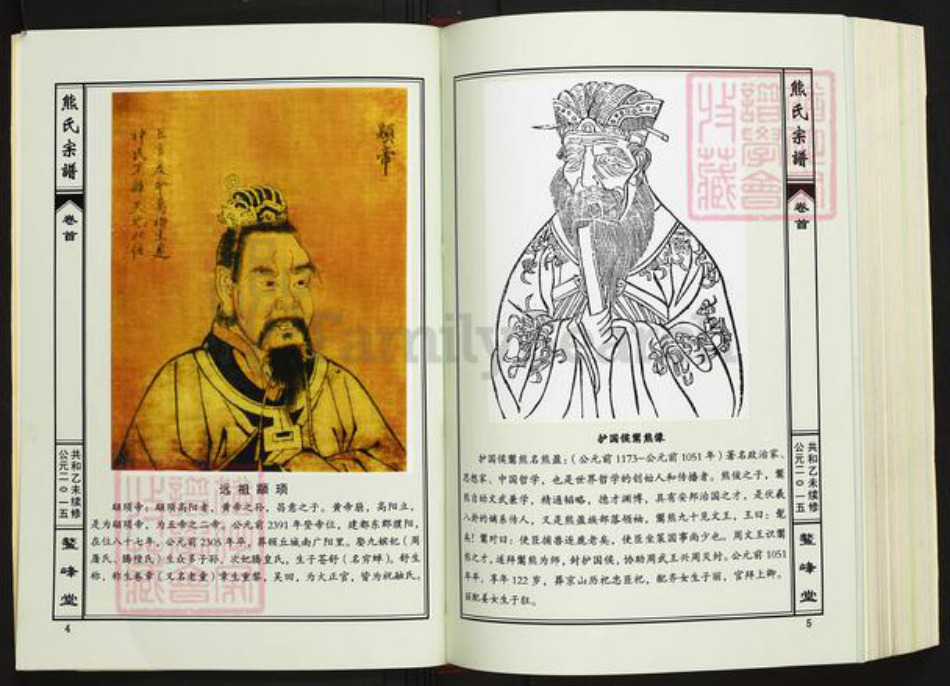 熊氏宗谱
卷首
共和乙未续修
公元二〇一五
鳌峰堂
4
顓帝
远祖颛顼
颛顼帝,颛顼高阳者,黄帝之孙,昌意之子。黄帝崩,高阳立,
是为颛顼帝,为五帝之二帝。公元前2391年登帝位,建都东郡濮阳,
在位八十七年,公元前2305年卒,葬顿丘城南广阳里。娶九嫔妃(周
屠氏、腾隍氏)生众多子孙,次妃腾皇氏,生子苍舒(名穷蝉)。舒生
称,称生卷章(又名老童)章生重黎、吴回,为大正官,皆为祝融氏。
熊氏宗谱
卷首
共和乙未续修
公元二〇一五
鳌峰堂
5
护国侯鬻熊像
护国侯鬻熊名熊盈:(公元前1173-公元前1051年)著名政治家、
思想家、中国哲学,也是世界哲学的创始人和传播者。熊俊之子,鬻
熊自幼文武兼学,精通韬略,德才渊博,具有安邦治国之才,是伏羲
八卦的嫡系传人,又是熊盈族部落领袖,鬻熊九十见文王,王曰:髦
矣!鬻对曰:使臣捕兽逐鹿老矣,使臣坐策国事尚少也。周文王识鬻
熊之才,遂拜鬻熊为师,封护国侯,协助周武王兴周灭纣。公元前1051
年卒,享年122岁,葬京山历祀忠臣祀,配齐女生子丽,官拜上卿。
丽配姜女生子狂。